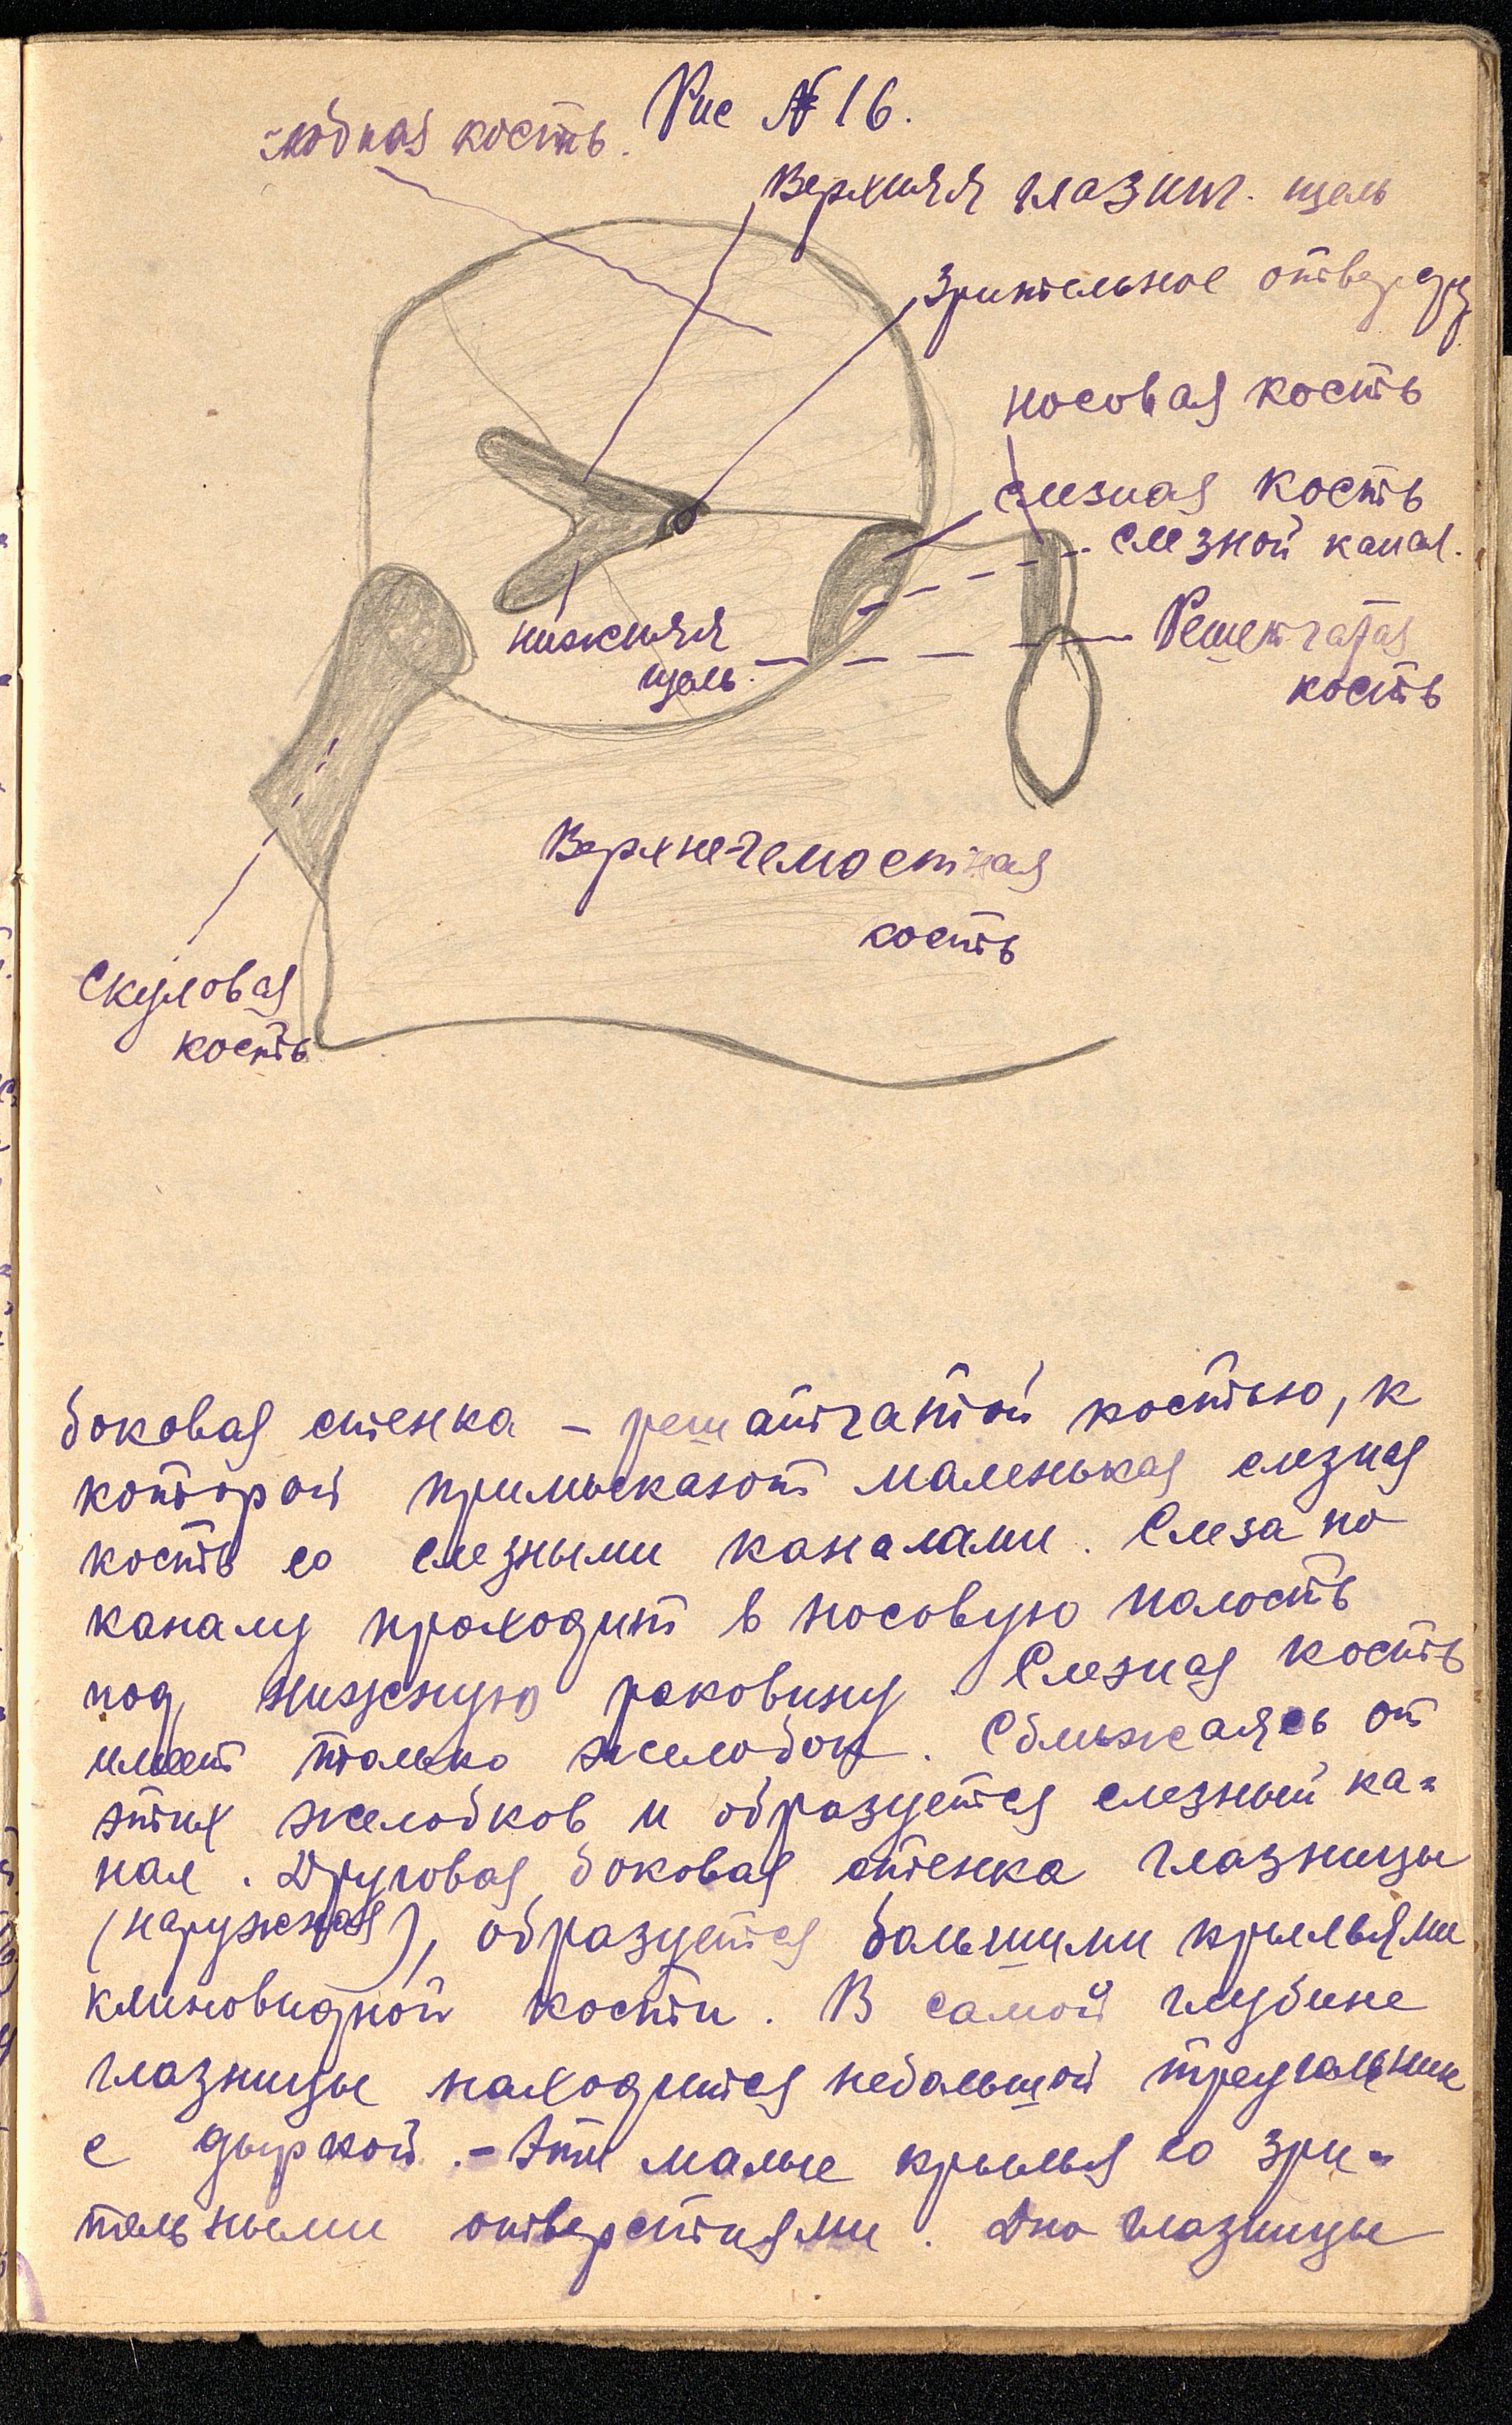 Рис № 16.
лобная кость.
Верхняя глазнич. щель
Зрительное отверст
носовая кость
слезная кость
слезной канал.
Решетчатая
кость
нижняя
щель.
Верхнечелюстная
кость
Скуловая
кость
боковая стенка - решатчатой костью, к
которой примыкают маленькая слезная
кость со слезными каналами. Слеза по
каналу проходит в носовую полость
под нижнюю раковину. Слезная кость
имеет только желобок. Сближаясь от
этих желобков и образуется слезный ка-
нал. Друговая боковая стенка глазницы
(наружная), образуется большими крыльями
клиновидной кости. В самой глубине
глазницы находится небольшой треугольник
с дыркой. - Эти малые крылья со зри-
тельными отверстиями. Дно глазницы